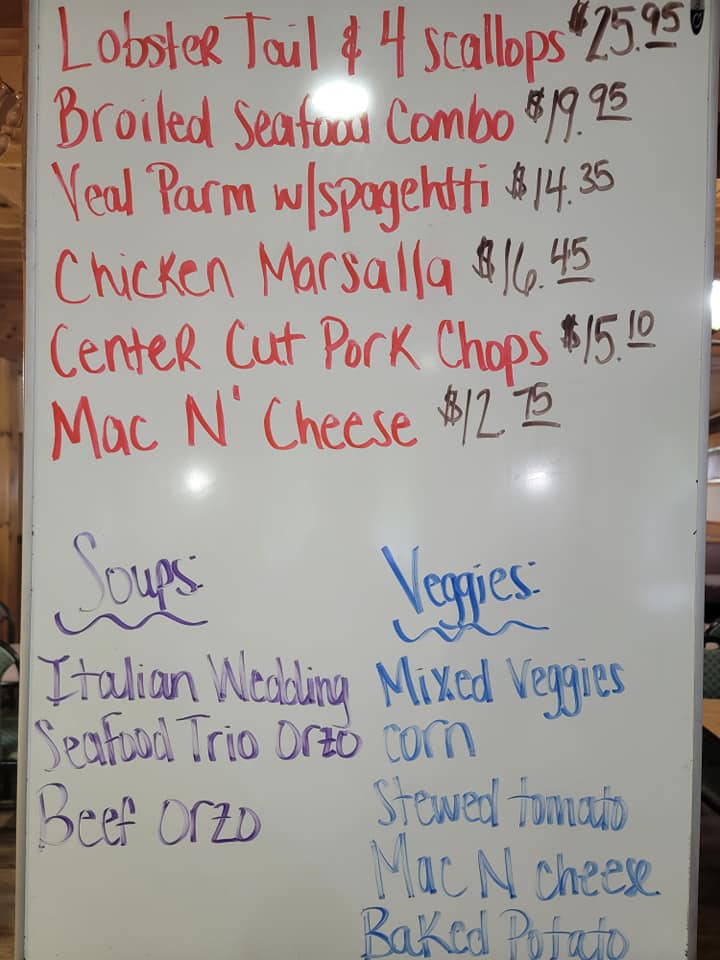 Lobster Tail & 4 scallops $25.95
Broiled Seafood Combo $19.95
Veal Parm w/spagehtti $14.35
Chicken Marsalla $16.45
Center Cut Pork Chops $15.10
Mac N' Cheese $12 75
Soups:
Italian Wedding
Seafood Trio Orzo
Beef Orzo
Veggies:
Mixed Veggies
corn
Stewed tomato
Mac N cheese
Baked Potato